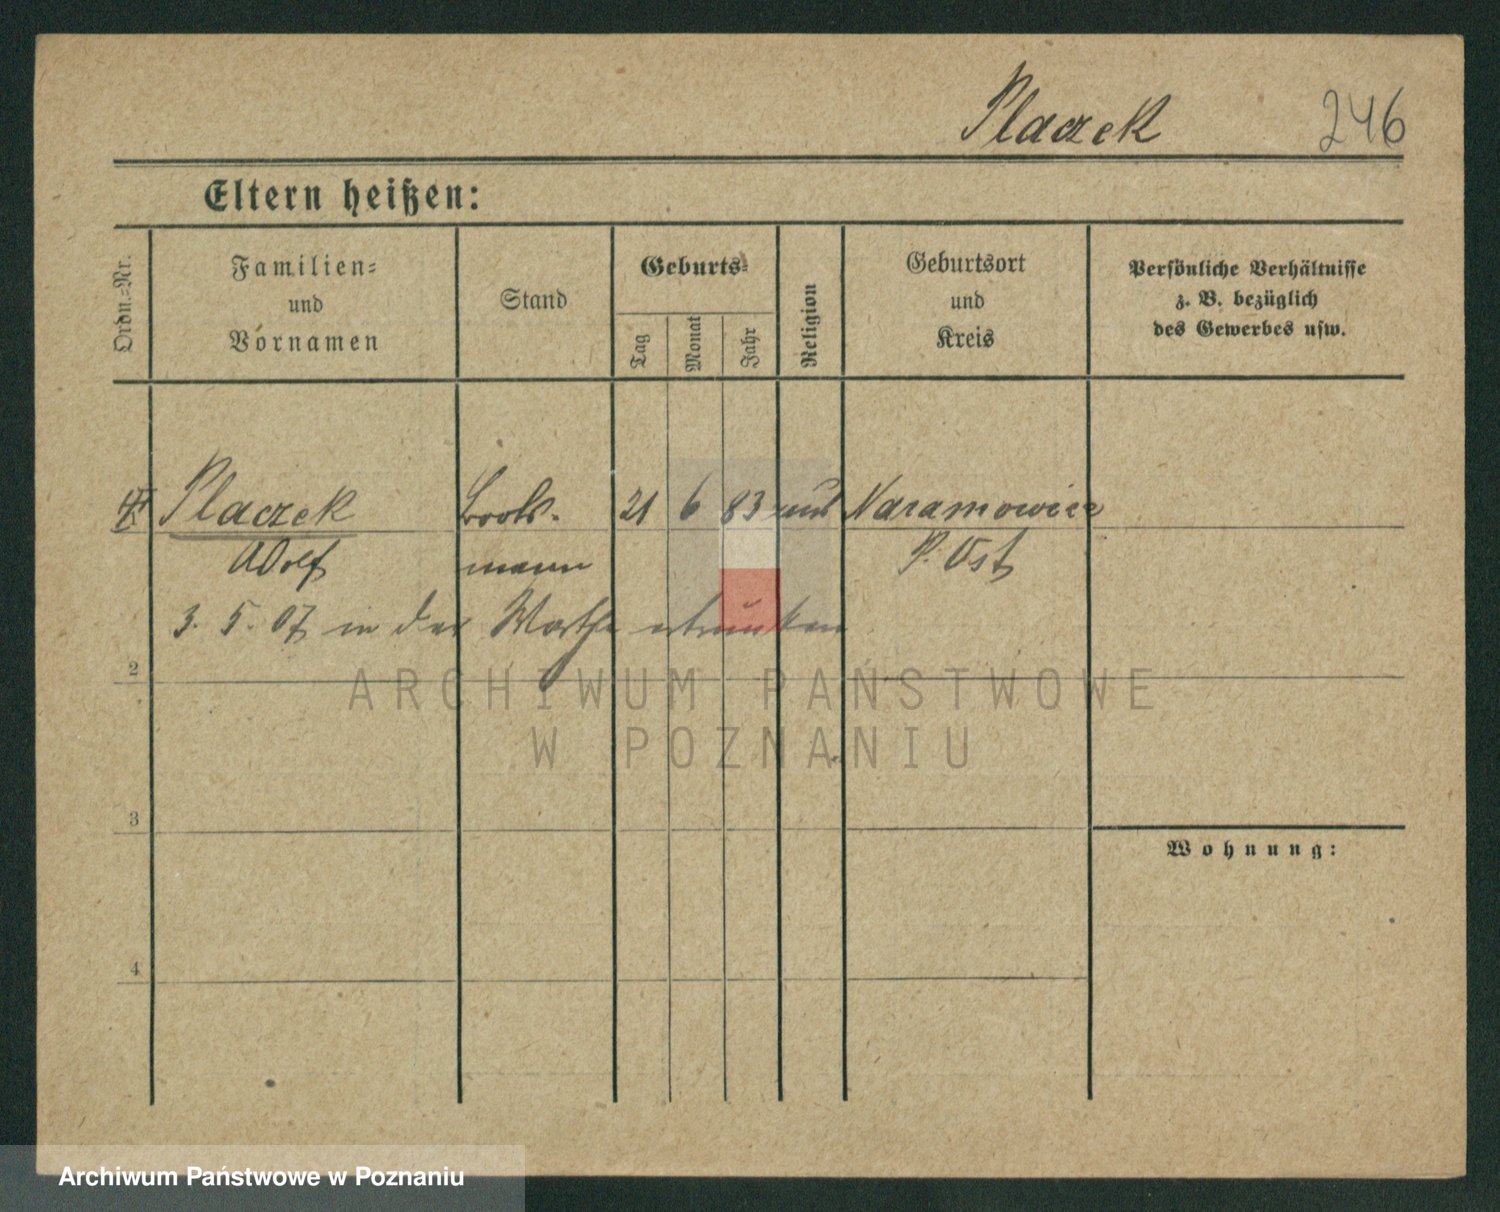 Placzek 246
Eltern heißen:
Ordn.=Nr.
Familien=
und
Vornamen
Stand
Geburts=
Tag
Monat
Jahr
Religion
Geburtsort
und
Kreis
Persönliche Verhältnisse
z. B. bezüglich
des Gewerbes usw.
Placzek Boots- 21 6 83 Naramowice
Adolf mann P. Ost
3. 5. 07 in der Warthe ertrunken
2
3
4
Wohnung:
ARCHIWUM PAŃSTWOWE
W POZNANIU
Archiwum Państwowe w Poznaniu